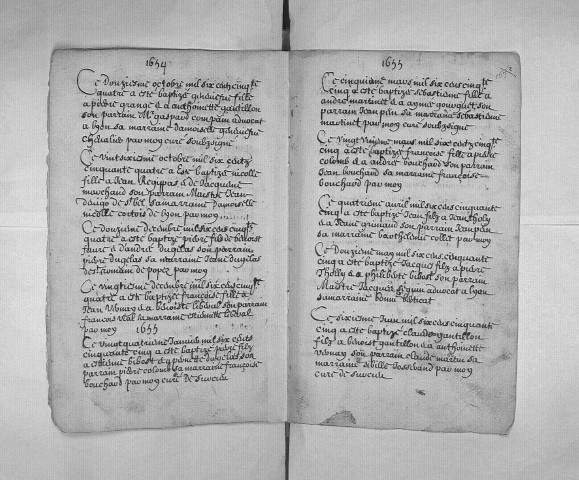 1654
Ce Douziesme octobre mil six cents cinq.te
quatre a este baptize geneviefve fille
a piere grange & a anthoinette gautillon
son parrain M.r gaspard advocat
a lyon sa marraine damoiselle geneviefve
par moy cure soubzsigne
Ce vintsixiesme octobre mil six centz
cinquante quatre a este baptize nicolle
fille a Jean & de Jacqueme
marchand son parrain Maistre Jean
samarraine damoiselle
nicolle cortois de lyon par moy
Ce douziesme decembre mil six cens cinq.te
quatre a este baptize piere filz de benoist
faure & dandree dugelas son parrain
piere dugelas sa marraine Jeane dugelas
par moy
Ce vingtiesme decembre mil six cens cinq.te
quatre a este baptizee francoise fille a
Jean Vernay & a benoiste liberal son parrain
francois vial sa marraine estiennette liberal
par moy
1655
Ce vingtquatriesme Janvier mil six cents
cinquante cinq a este baptize piere filz
a estienne bibost & a penette dugelas son
parrain piere colomb sa marraine françoise
bouchard par moy cure de
1655
Ce cinquiesme mars mil six cens cinq.te
cinq a este baptize sebastienne fille a
andre martinet & a aymee gouuguet son
parrain Jean pen sa marraine sebastienne
martinet par moy cure soubzsigne
Ce vingt mars mil six centz cinq.te
cinq a este baptize francoise fille a piere
colomb & a andree bouchard son parrain
Jean bouchard sa marraine françoise
bouchard par moy
Ce quatriesme avril mil six cens cinquante
cinq a este baptize Jean filz a Jean tholy
& a Jeane grimaud son parrain Jean pen
sa marraine barthelemie collet par moy
Ce Douziesme may mil six cens cinquante
cinq a este baptize Jacques filz a piere
Tholly & a philiberte bibost son parrain
Maistre Jacques advocat a lyon
samarraine
Ce sixiesme Juin mil six cens cinquante
cinq a este baptize claude gautillon
filz a benoist gautillon & a anthoinette
Vernay son parrain claude sa
marraine sibille par moy
cure de